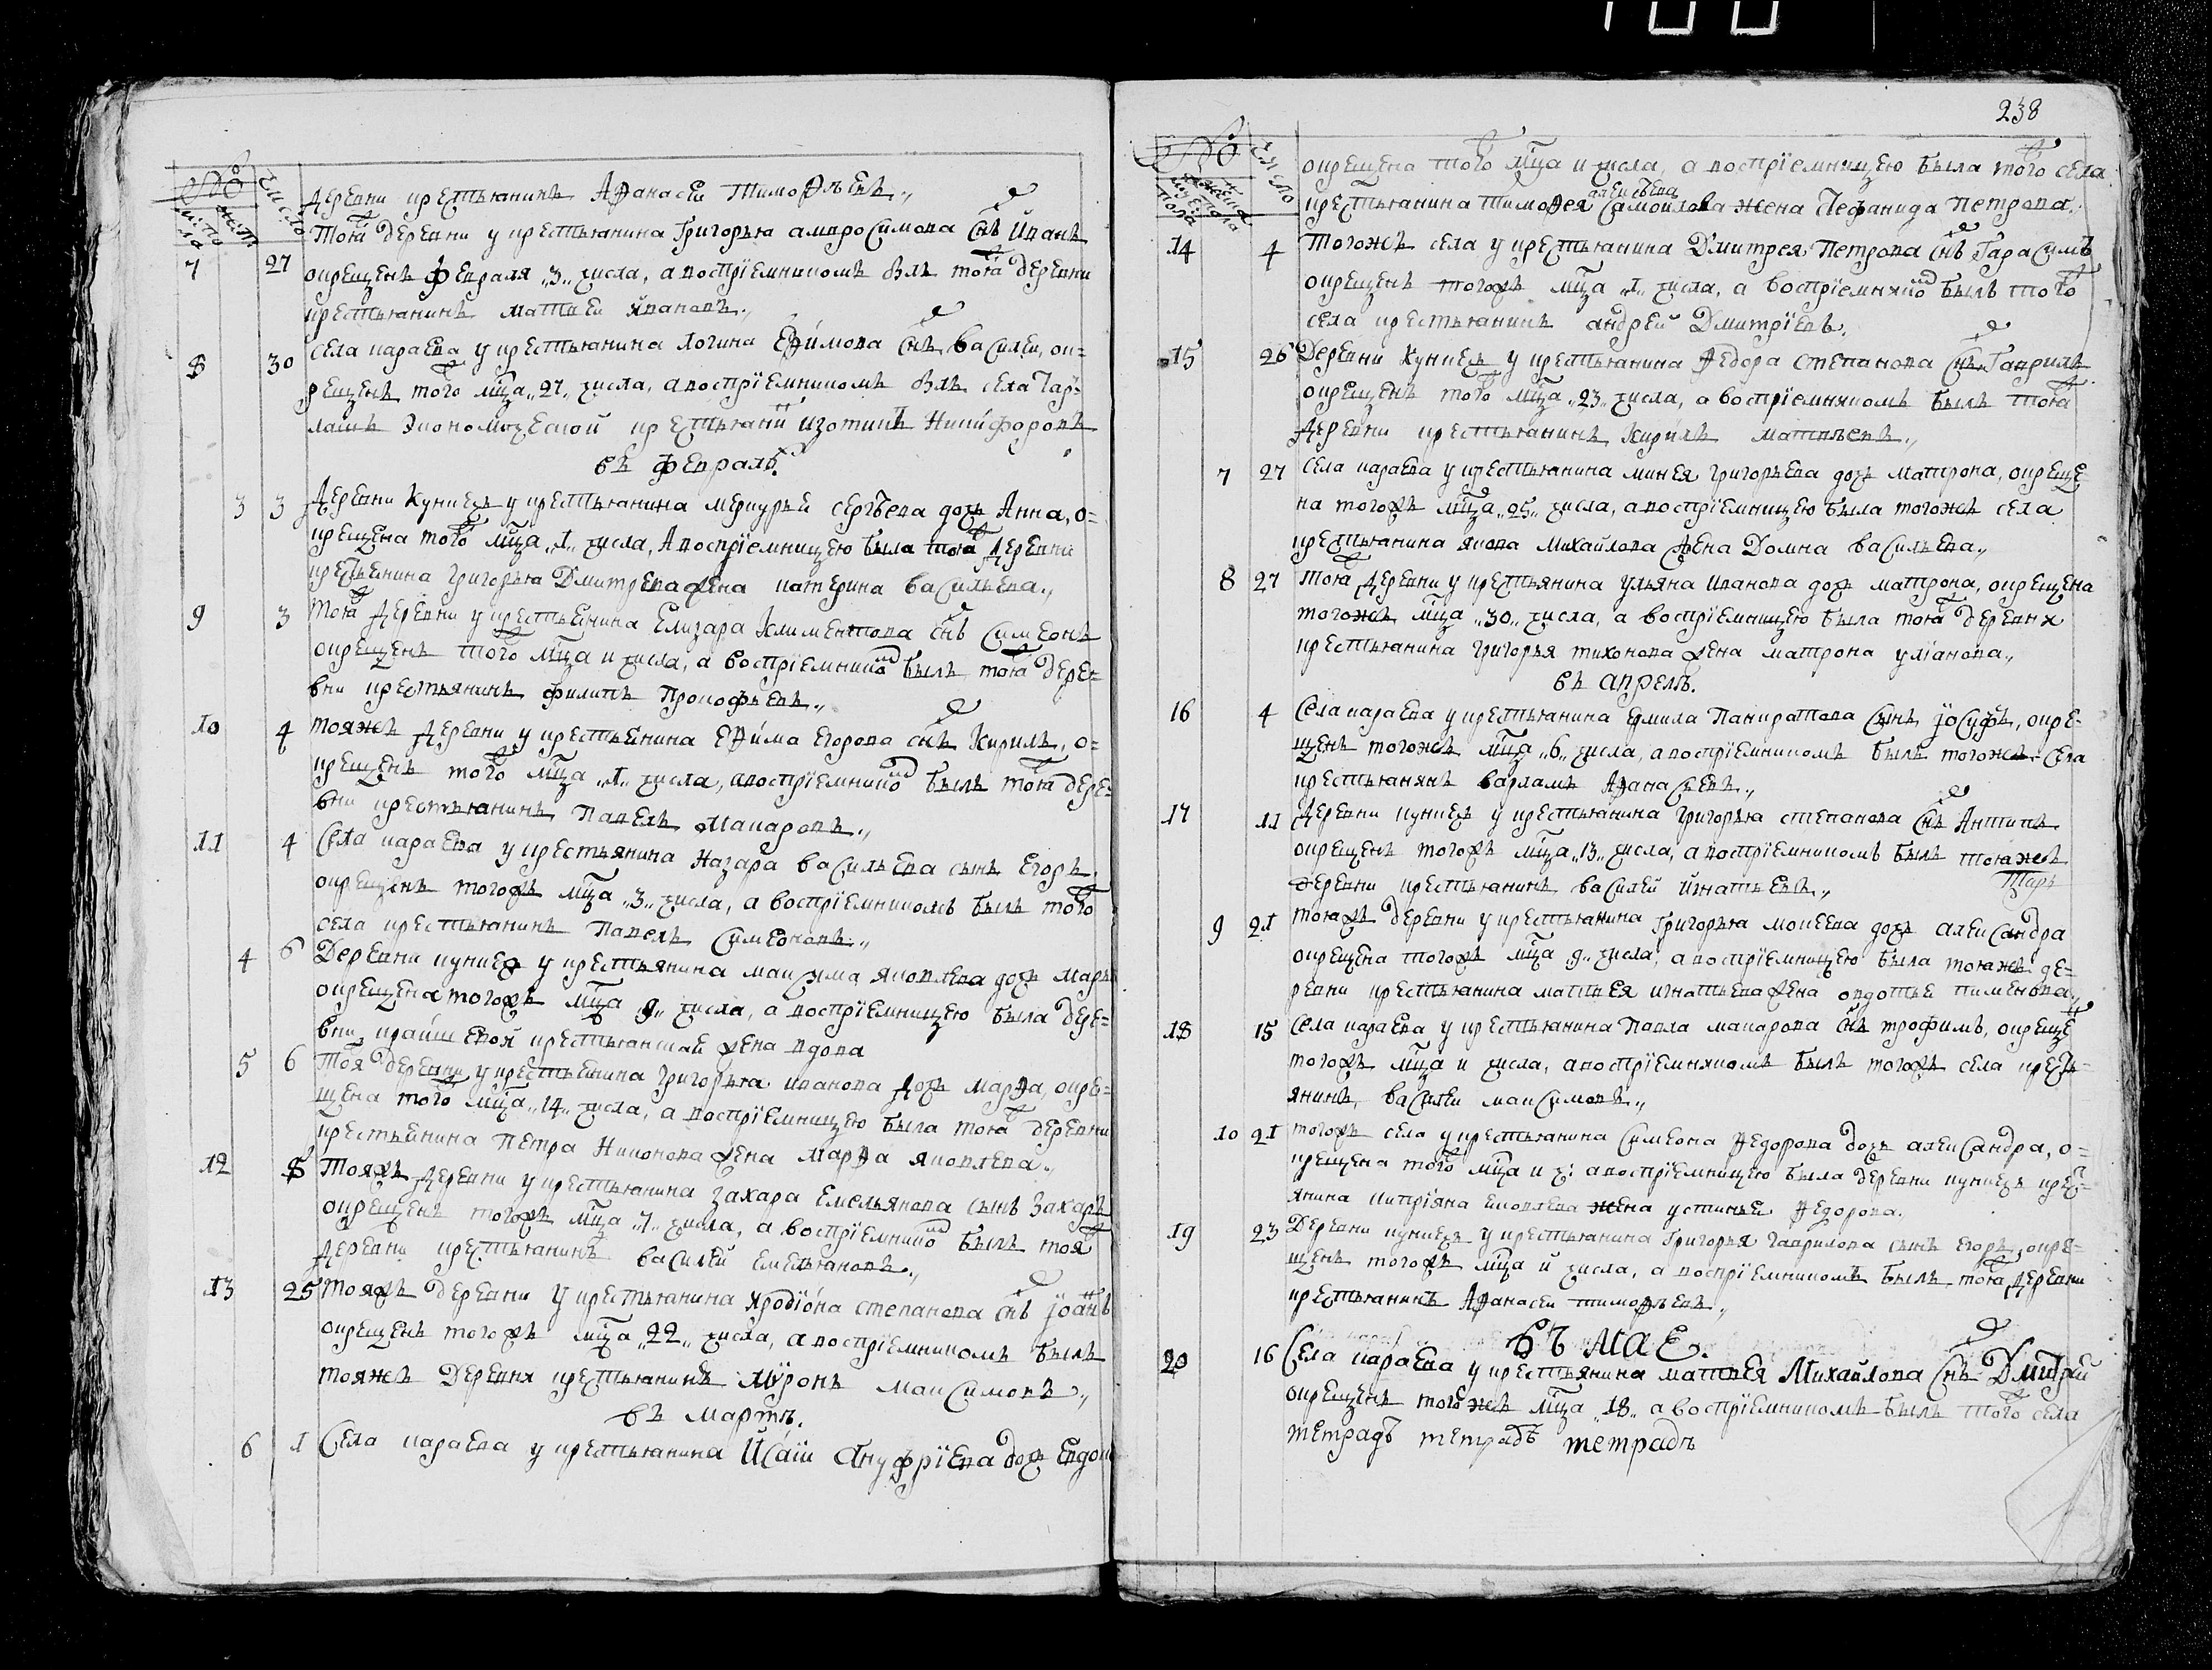 № число
мус: по ла жен:
деревни крестьянинъ Афанасеи Тимофѣевъ.,
7 27 тоя деревни у крестьянина Григорья амвросимова снъ Иванъ
окрещенъ февраля „3„ числа, а воспрїемникомъ былъ тоя деревни
крестьянинъ матвеи ивановъ.,
8 30 села караева у крестьянина логина Ефимова снъ василеи, ок=
рещенъ того мца „27„ числа, а воспрїемникомъ былъ села Гар=
лашъ экономической крестьяни изотикъ Никифоровъ
въ февралѣ.
3 3 Деревни Куниех у крестьянина меркурьи сергѣева дочь Анна, о=
крещена того мца „1„ числа, а воспрїемницею была тоя деревни
крестьянина григорья Дмитрева жена катерина васильева.,
9 3 тоя деревни у крестьянина Елизара климентова снъ Симеонъ
окрещенъ того мца и числа, а воспрїемнико былъ тоя дере=
вни крестьянинъ филипъ Прокофьевъ.,
10 4 тояжъ деревни у крестьянина Ефима Егорова снъ Кирилъ, о=
крещенъ того мца „1„ числа, а воспрїемнико былъ тоя дере=
вни крестьянинъ Павелъ Макаровъ.,
11 4 Села караева у крестьянина Назара васильева сынъ Егоръ
окрещенъ тогожъ мца „3„ числа, а воспрїемникомъ былъ того
села крестьянинъ Павелъ Симеоновъ.,
4 6 Деревни куниех у крестьянина максима яковлева дочь марь
окрещена тогожъ мца „9„ числа, а воспрїемницею была дере=
вни крестьян жена вдова
5 6 тоя деревни у крестьянина григорья иванова дочь марфа, окре=
щена того мца „14„ числа, а воспрїемницею была тоя деревни
крестьянина петра Никонова жена марфа яковлева.,
12 8 тояжъ деревни у крестьянина захара Емельянова сынъ Захаръ
окрещенъ тогожъ мца „7„ числа, а воспрїемнико былъ тоя
деревни крестьянинъ василей Емельяновъ.,
13 25 тояжъ деревни у крестьянина яродїона степанова снъ їоанъ
окрещенъ тогожъ мца „22„ числа, а воспрїемникомъ былъ
тояжъ деревня крестьянинъ мѵронъ максимовъ.,
въ мартѣ.
6 1 Села караева у крестьянина Исаїи Ануфрїева дочь Евдок
238
№ число
мужеска пола женска пола
окрещена того мца и числа, а воспрїемницею была того села
алексѣева
крестьянина тимофея Самойлова жена Стефанида петрова.
14 4 тогожъ села у крестьянина Дмитрея петрова снъ Гарасимъ
окрещенъ тогожъ мца „1„ числа, а воспрїемнико былъ того
села крестьянинъ андрей Дмитрїевъ.
15 26 Деревни Куниех у крестьянина Федора степанова снъ Гаврилъ
окрещенъ того мца „23„ числа, а воспрїемникомъ былъ тоя
деревни крестьянинъ Кирилъ матвѣевъ.,
7 27 села караева у крестьянина минея григорьева дочь матрона, окреще
на тогожъ мца „25„ числа, а воспрїемницею была тогожъ села
крестьянина якова михайлова жена Домна васильева.,
8 27 тоя деревни у крестьянина ульяна иванова дочь матрона, окрещена
тогожъ мца „30„ числа, а воспрїемницею была тоя деревня
крестьянина григорья тихонова жена матрона улїанова.,
въ апрелѣ.
16 4 Села караева у крестьянина ермила Панкратова сынъ їосуфъ, окре=
щенъ тогожъ мца „6„ числа, а воспрїемникомъ былъ тогожъ села
крестьянянъ варламъ Афанасьевъ.,
17 11 деревни куниех у крестьянина григорья степанова снъ Антипъ
окрещенъ тогожъ мца „13„ числа, а воспрїемникомъ былъ тояжъ
деревни крестьянинъ василей игнатьевъ.,
9 21 тояжъ деревни у крестьянина григорья мокеева дочь александра
окрещена тогожъ мца „9„ числа, а воспрїемницею была тояжъ де=
ревни крестьянина матвея игнатьева жена овдотьи пименова.,
18 15 Села караева у крестьянина Павла макарова снъ трофимъ, окреще
тогожъ мца и числа, а воспрїемникомъ былъ тогожъ села кресть=
янинъ, василеи максимовъ.,
10 21 тогожъ села у крестьянина Симеона Федорова дочь александра, о=
крещена того мца и ч: а воспрїемницею была деревни куниех крест=
янина кипрїяна яковлева жена устиньи Федорова.
19 23 Деревни куниех у крестьянина григорья гаврилова сынъ егоръ, окре=
щенъ тогожъ мца и числа, а воспрїемникомъ былъ тоя деревни
крестьянинъ Афанасеи тимофѣевъ.,
въ мае.
20 16 Села караева у крестьянина матвея Михайлова снъ Дмитрїй
окрещенъ тогожъ мца „18„ а воспрїемникомъ былъ того села
тетрадь тетрадь тетрадь